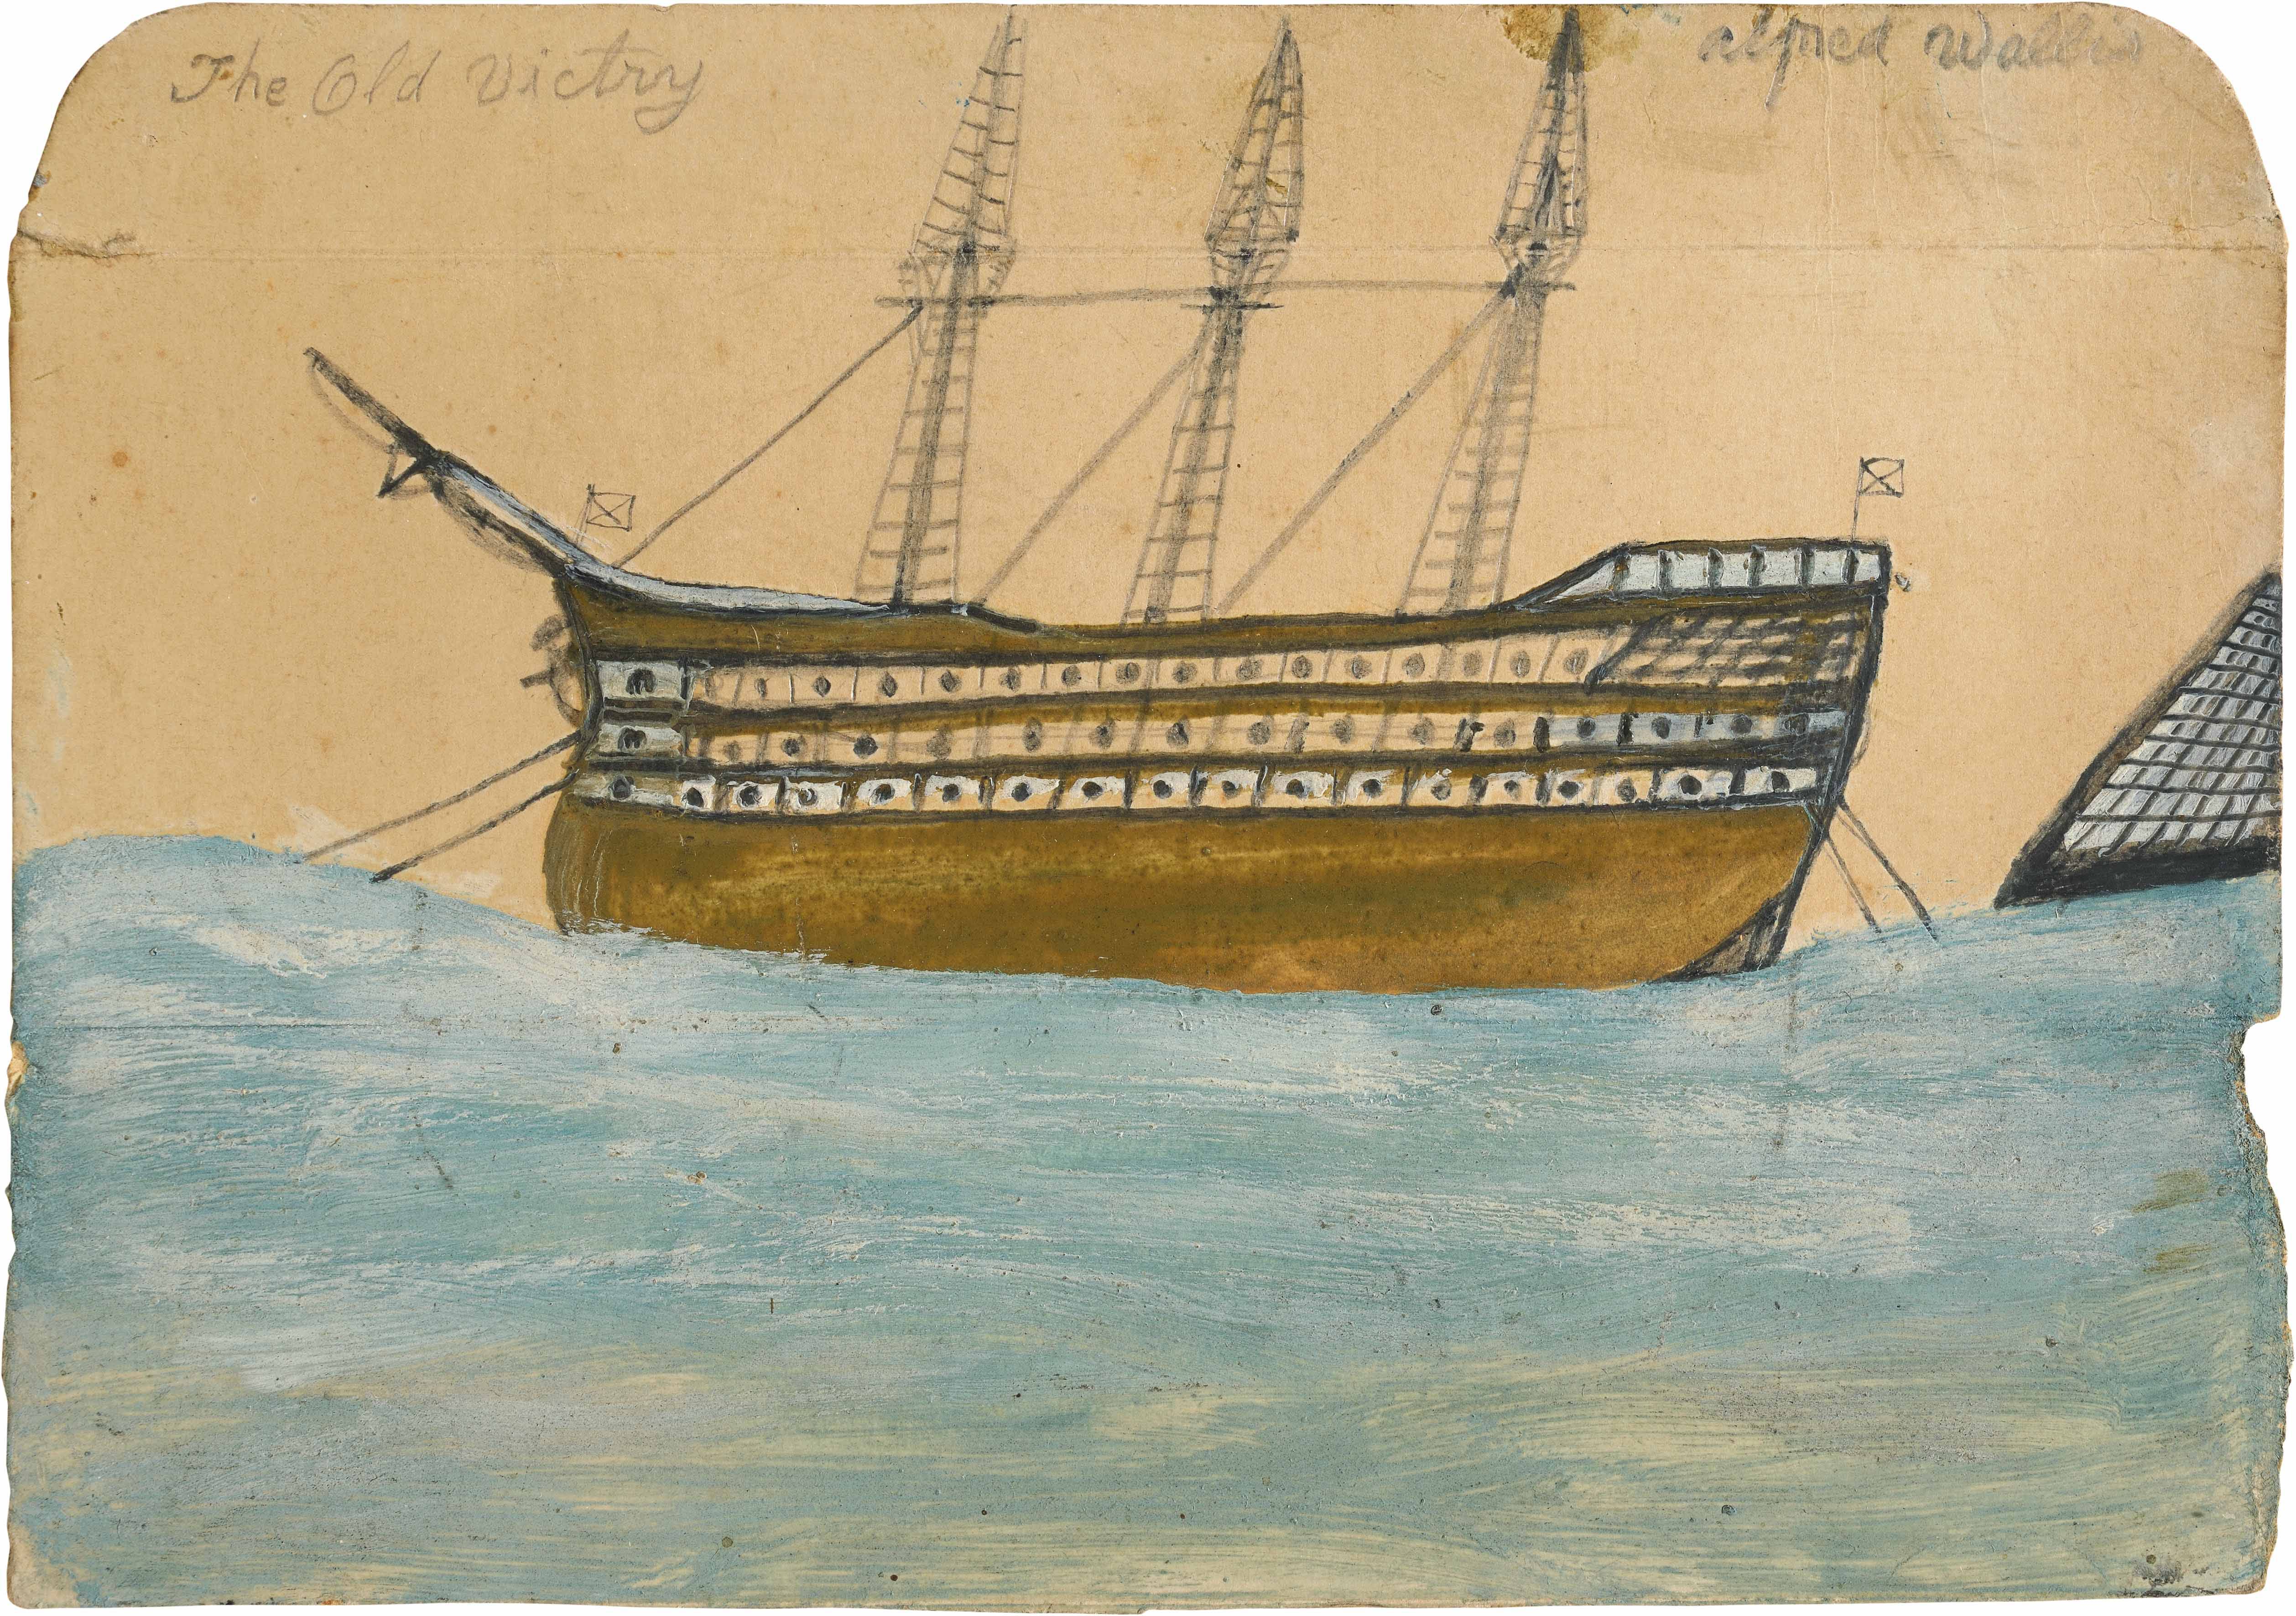 The Old Victry
alfred Wallis